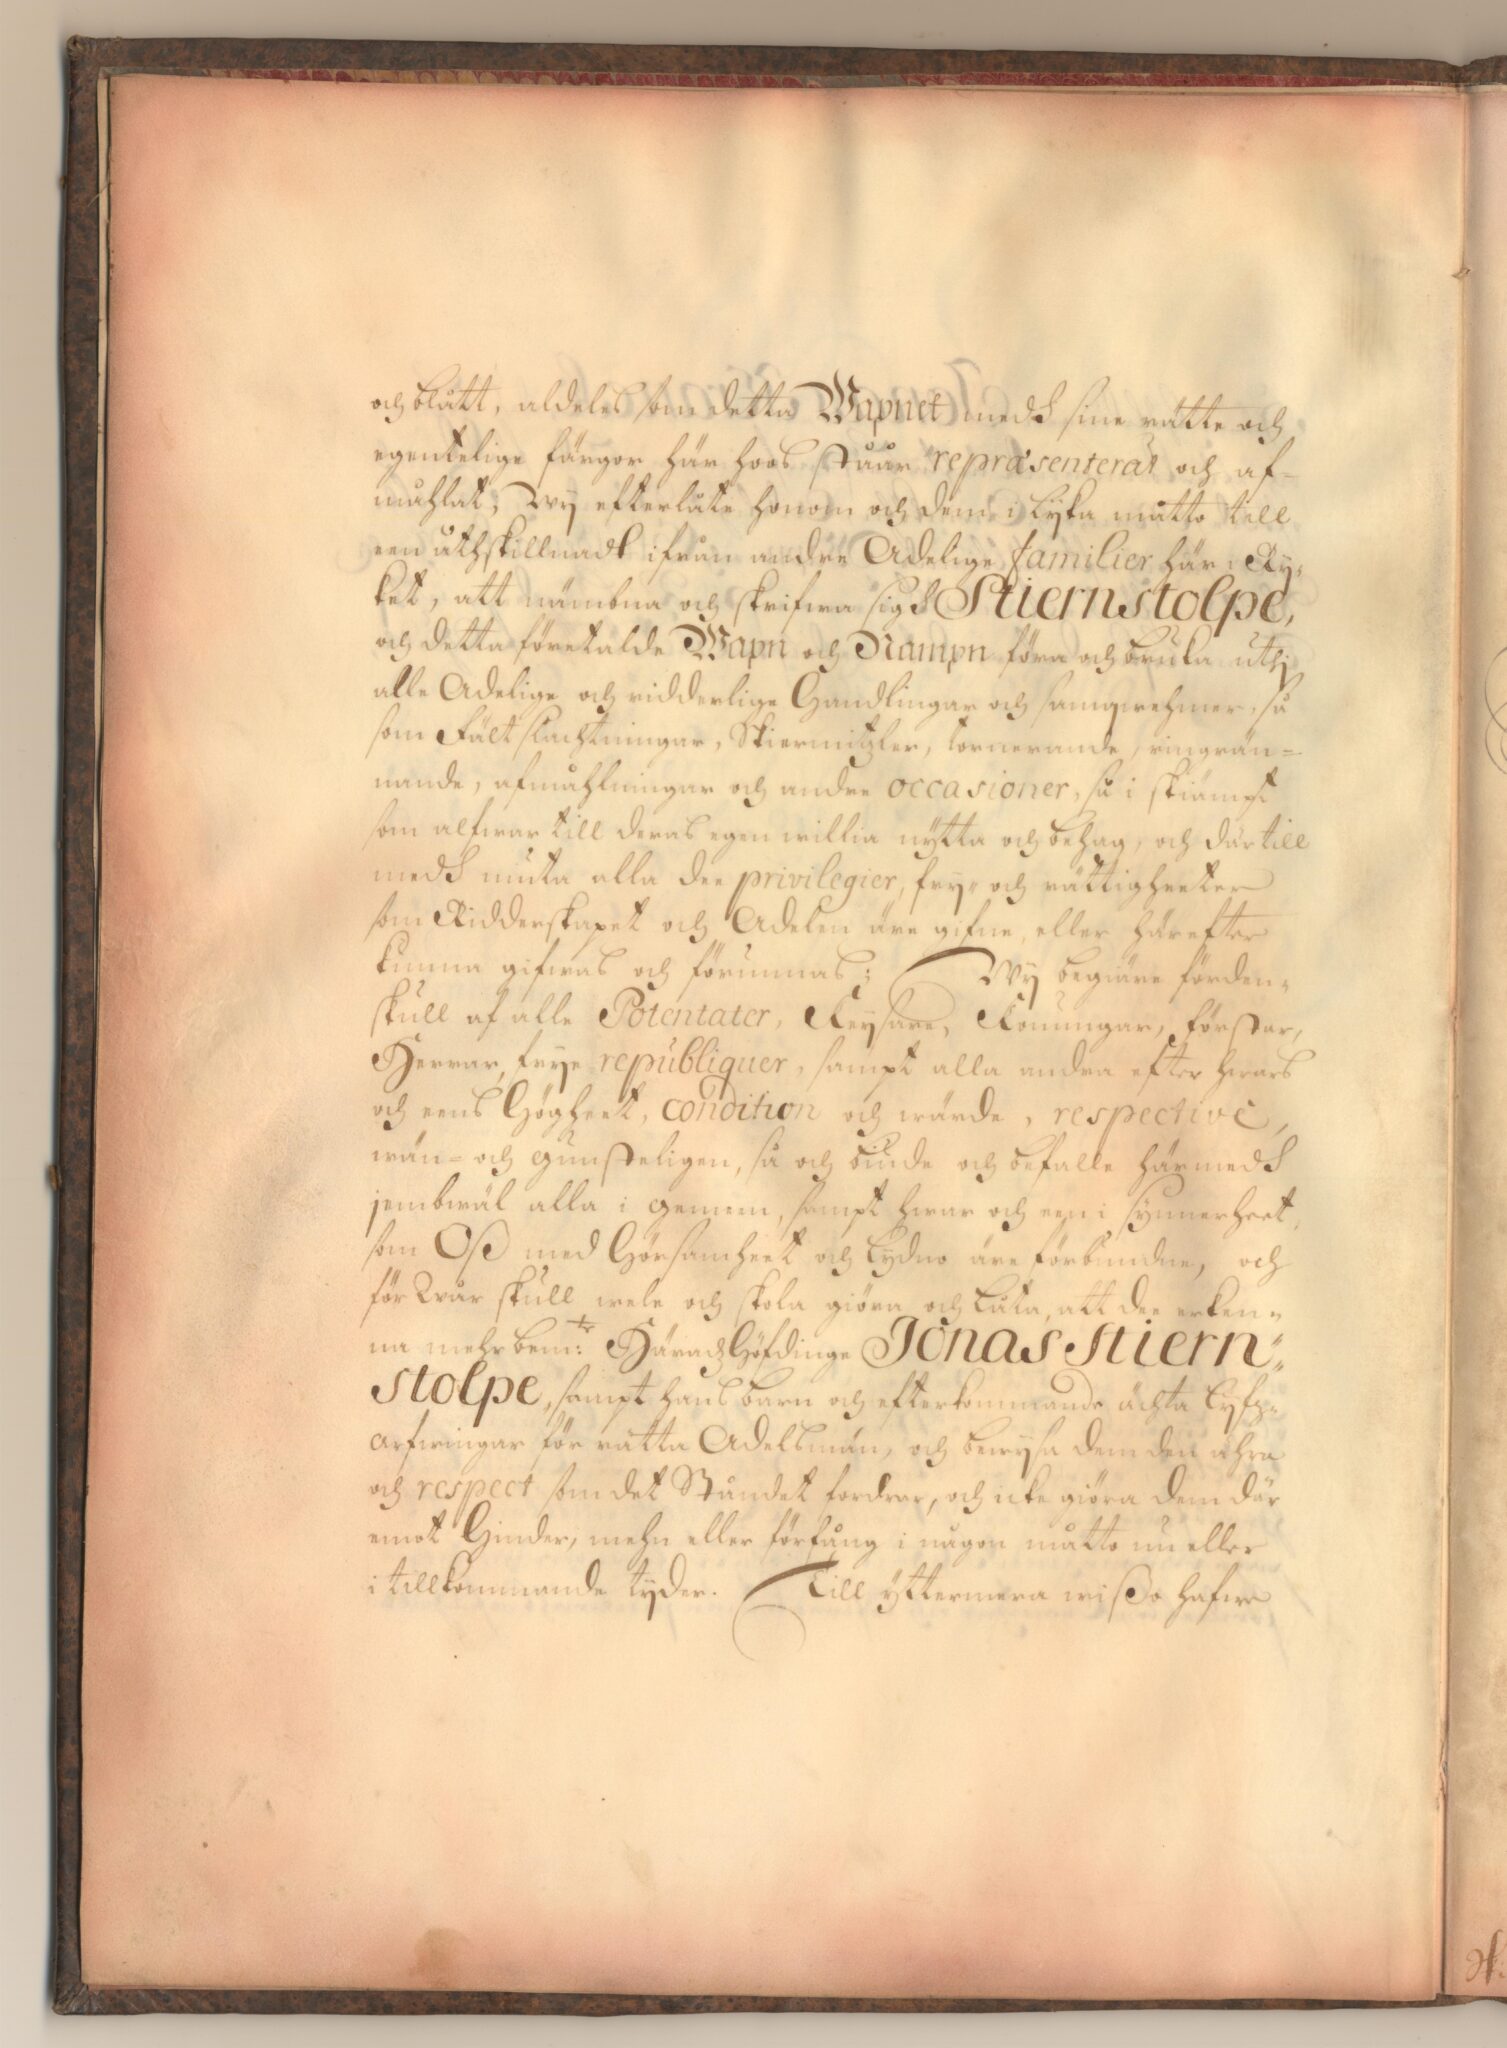 och blått, aldeles som detta Wapnet medh sine rätte och
egentelige färgor här hoos ståår repræsenterat och af-
måhlat; Wy efterlåte honom och dem i lyka måtto till
een åthskillnadt ifrån andre Adelige familier här i Ry-
ket, att nämbna och skrifwa sigh Stiernstolpe,
och detta företalde Wapn och Nampn föra och bruka uthj
alle Adelige och ridderlige Handlingar och samqwehmer, så
som Fältslachtningar, Skiermitzler, tornerande, ringrän-
nande, afmåhlningar och andre occasioner, så i skiämpt
som alfwar till deras egen willia nytta och behag, och där till
medh niuta alla dee privilegier, fry- och rättigheeter
som Ridderskapet och Adelen äre gifne, eller härefter
kunna gifwas och förunnas; Wy begiäre förden-
skull af alle Potentater, Keysare, Konungar, Förstar,
Herrar, frye republiquer, sampt alla andra efter hwars
och eens Högheet, condition och wärde, respective,
wän- och gunsteligen, så och biude och befalle härmedh
jembwäl alla i gemeen, sampt hwar och een i synnerheet,
som Oß med Hörsamheet och lydno äre förbundne, och
för Wår skull wele och skola giöra och låta, att dee erken-
na mehrbem:te Häradz Höfdinge Jonas Stiern-
stolpe, sampt hans barn och efterkommande ächta lyfz-
arfwingar för rätta Adelsmän, och bewysa dem den ähra
och respect som det Ståndet fordrar, och icke giöra dem där
emot Hinder, mehn eller förfång i någon måtto nu eller
i tillkommande tyder. Till yttermera wißo hafwe